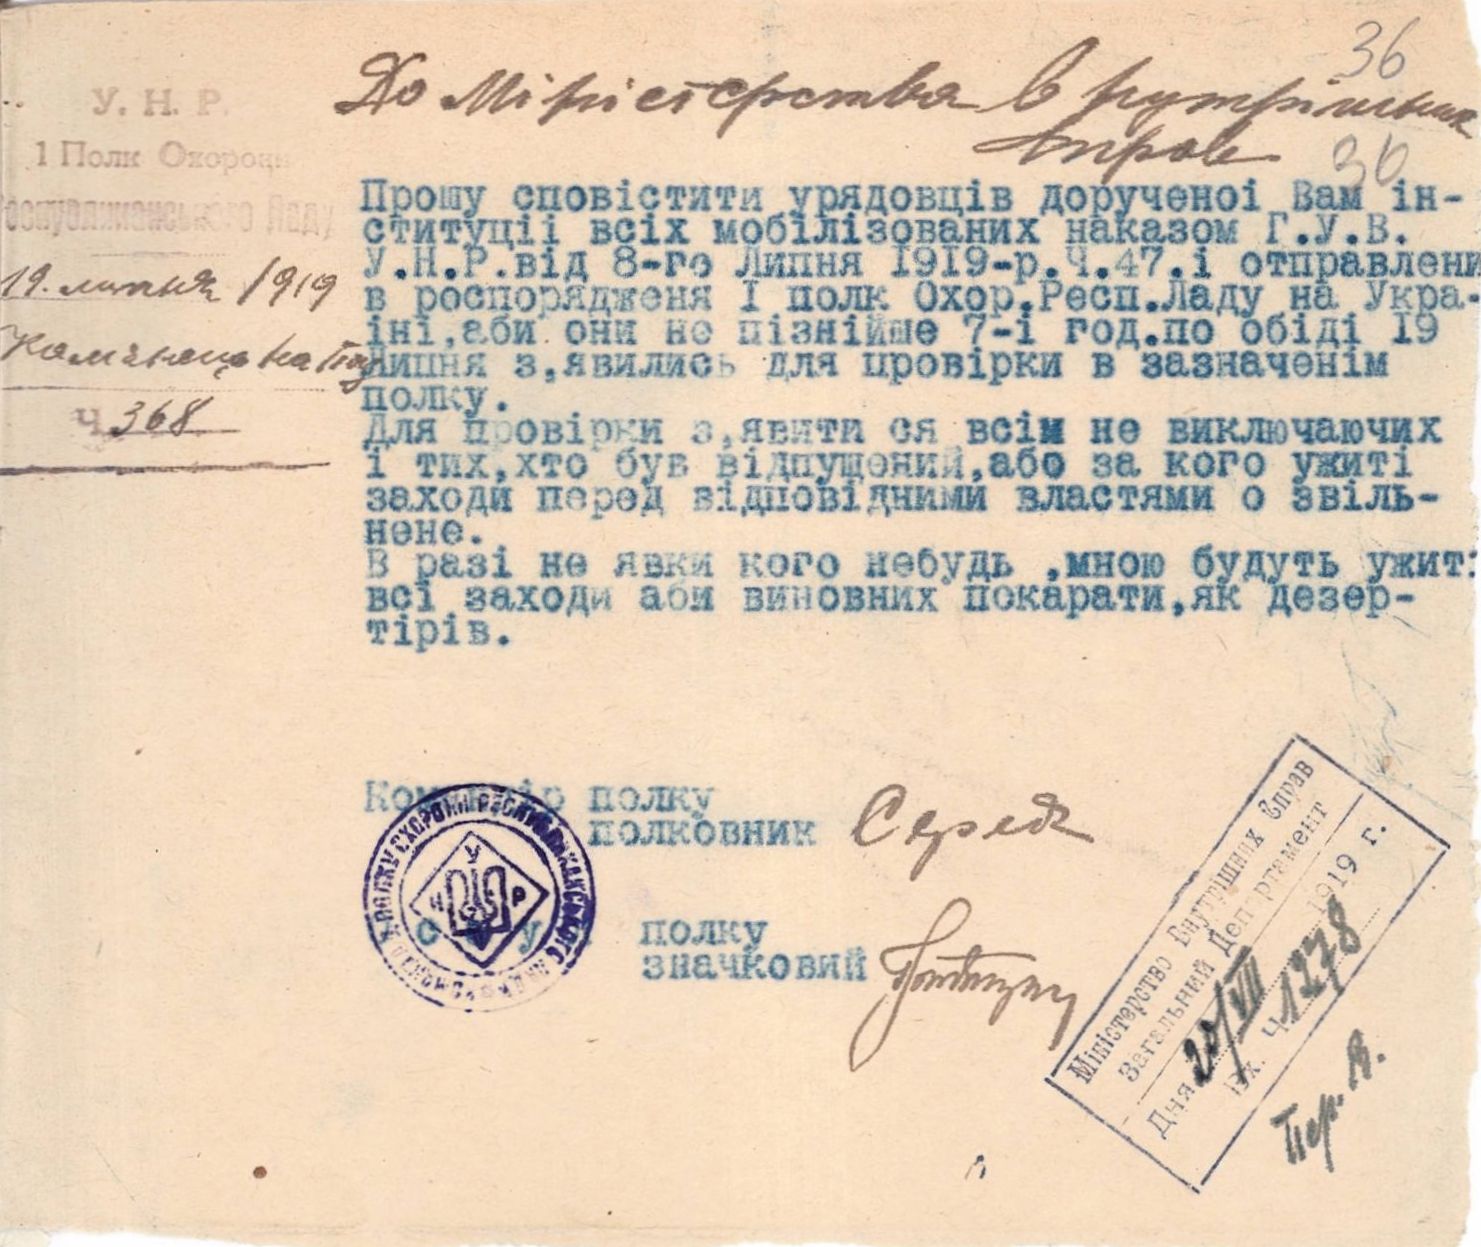 36
До Міністерства Внутрішніх
справ
36
У. Н. Р.
1 Полк Охорони
Республиканського Ладу
19. липня 1919
Каменець на Под
Ч. 368
Прошу сповістити урядовців дорученоі Вам ін-
ституціі всіх мобілізованих наказом Г.У.В.
У.Н.Р.від 8-го Липня 1919-р.Ч.47.і отправлени
в роспорядженя І полк Охор.Респ.Ладу на Укра-
іні,аби они не пізнійше 7-і год.по обіді 19
липня з,явились для провірки в зазначенім
полку.
Для провірки з,явити ся всім не виключаючих
і тих,хто був відпущений,або за кого ужиті
заходи перед відповідними властями о звіль-
нене.
В разі не явки кого небудь ,мною будуть ужиті
всі заходи аби виновних покарати,як дезер-
тірів.
Командір полку
полковник Середа
полку
значковий
У
Н Р
Міністерство Внутрішних Справ
Загальний Департамент
Дня 20/VII 1919 г.
Вх. Ч 1278
Пер. В.